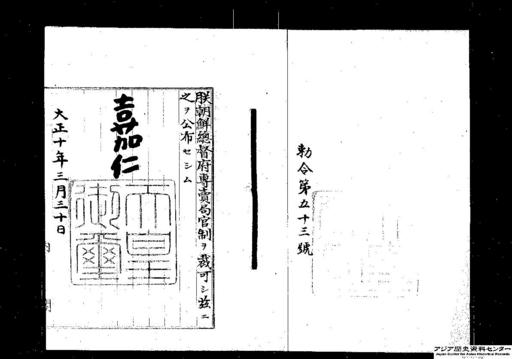 勅令第五十三號
朕朝鮮總督府專賣局官制ヲ裁可シ茲ニ
之ヲ公布セシム
嘉仁
天皇御璽
大正十年三月三十日
アジア歴史資料センター
Japan Center for Asian Historical Records